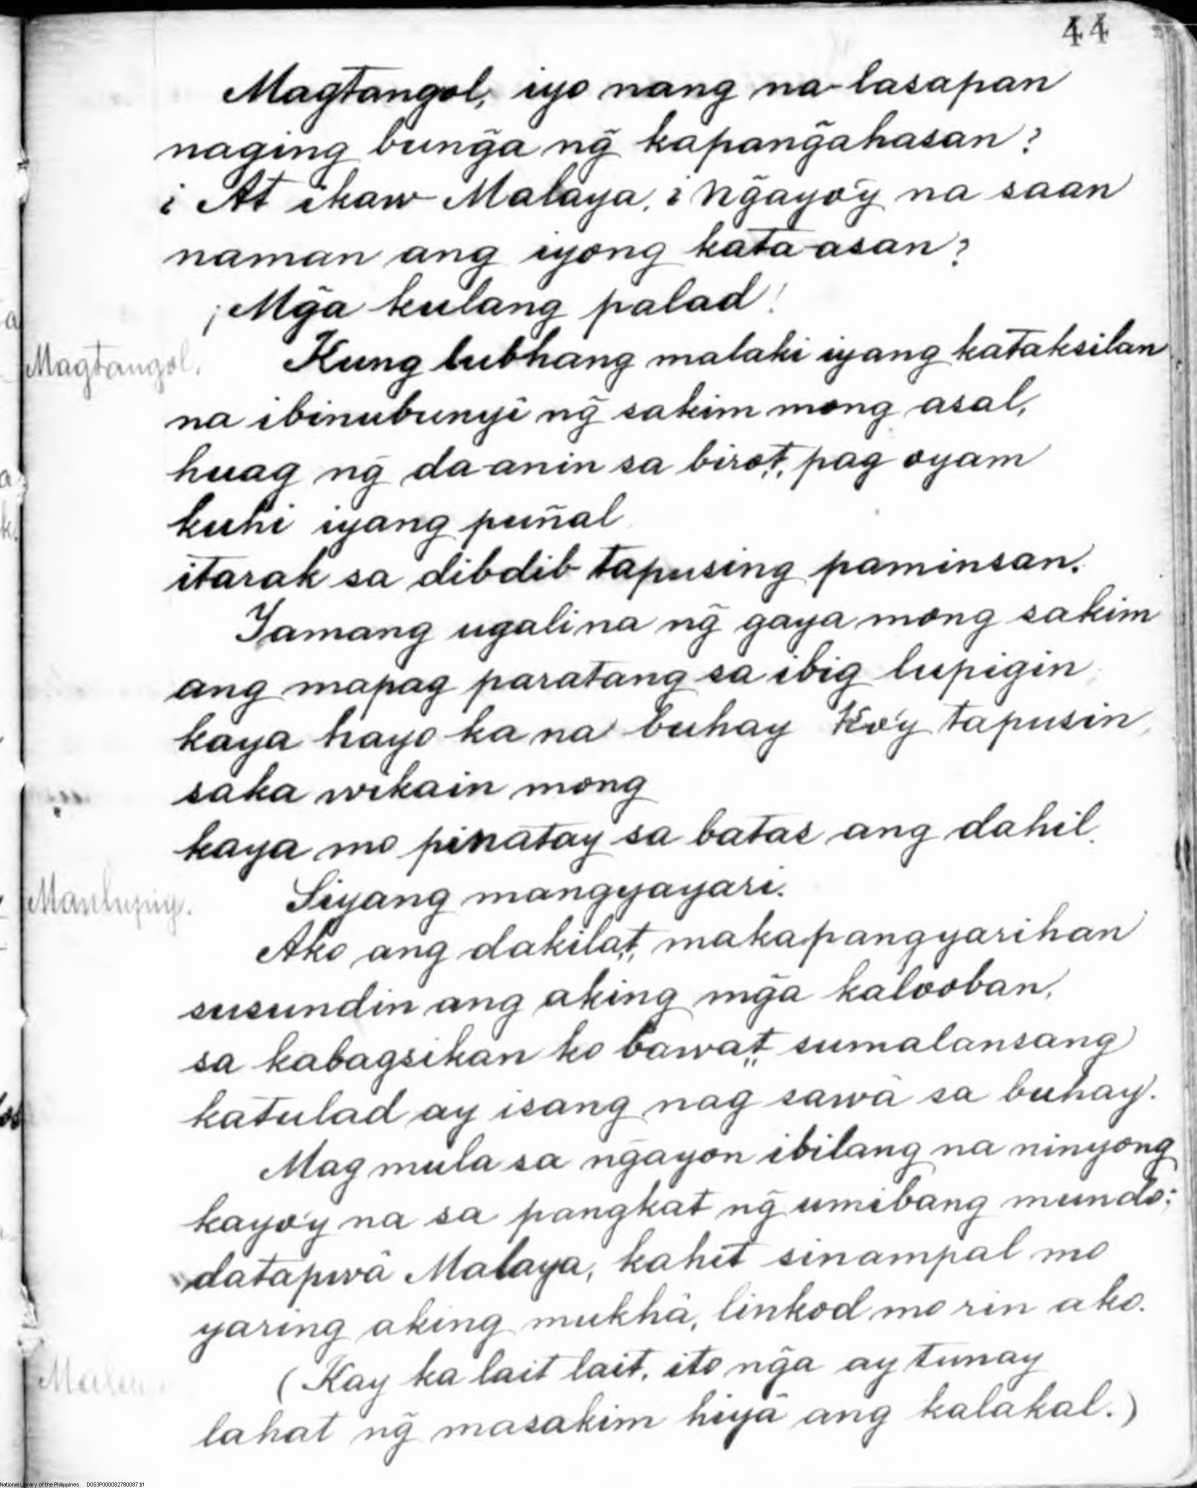 44
Magtangol, iyo nang na-lasapan
naging bung̃a ng̃ kapang̃ahasan?
¿ At ikaw Malaya, ¿ Ng̃ayo'y na saan
naman ang iyong kata-asan?
¡Mg̃a kulang palad!
Magtangol. Kung lubhang malaki iyang kataksilan
na ibinubunyî ng̃ sakim mong asal,
huag ng̃ da-anin sa birot, pag oyam
kuhi iyang puñal
itarak sa dibdib tapusing paminsan.
Yamang ugali na ng̃ gaya mong sakim
ang mapag paratang sa ibig lupigin
kaya hayo ka na buhay ko'y tapusin,
saka wikain mong
kaya mo pinatay sa batas ang dahil.
Manlupig. Siyang mangyayari.
Ako ang dakilat, makapangyarihan
susundin ang aking mg̃a kalooban,
sa kabagsikan ko bawat sumalansang
katulad ay isang nag sawâ sa buhay.
Mag mula sa ng̃ayon ibilang na ninyong
kayo'y na sa pangkat ng̃ umibang mundo;
datapwâ Malaya, kahit sinampal mo
yaring aking mukhâ, linkod mo rin ako.
(Kay ka lait lait, ito ng̃a ay tunay
lahat ng̃ masakim hiyâ ang kalakal.)
National Library of the Philippines